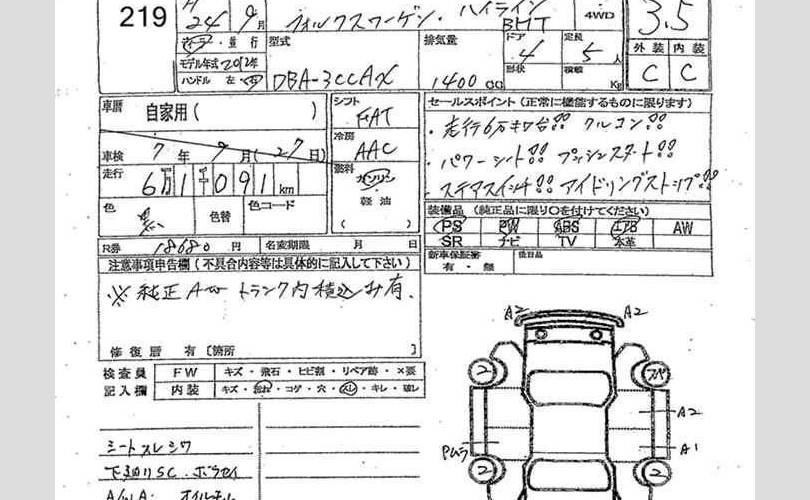 219
24 9月 フォルクスワーゲン・ハイライン BMT 4WD 3.5
並行 型式 排気量 ドア 4 定員 5人 外装 内装
モデル年式 2012年 形状 積載 Kg C C
ハンドル 左・右 DBA-3CCAX 1400cc
車歴 自家用( ) シフト FAT セールスポイント(正常に機能するものに限ります)
・走行6万キロ台!! クルコン!!
車検 7年9月(27日) 冷房 AAC ・パワーシート!! プッシュスタート!!
走行 6万1千091km 燃料 ガソリン ・ステアスイッチ!! アイドリングストップ!!
色 黒 色替 色コード 軽油 ( )
装備品(純正品に限り○を付けてください)
PS PW ABS エアB AW
SR ナビ TV 本革
R券 18680円 名変期限 月 日 新車保証書 有・無 後日品
注意事項申告欄(不具合内容等は具体的に記入して下さい)
※純正AW トランク内積込み有.
修復歴 有 [箇所 ]
検査員 FW キズ・飛石・ヒビ割・リペア跡・×要
記入欄 内装 キズ・汚れ・コゲ・穴・スレ・キレ・破レ
A2 A2
2 スペア
A2
A1
2 2
シートスレシワ
下廻りSC.